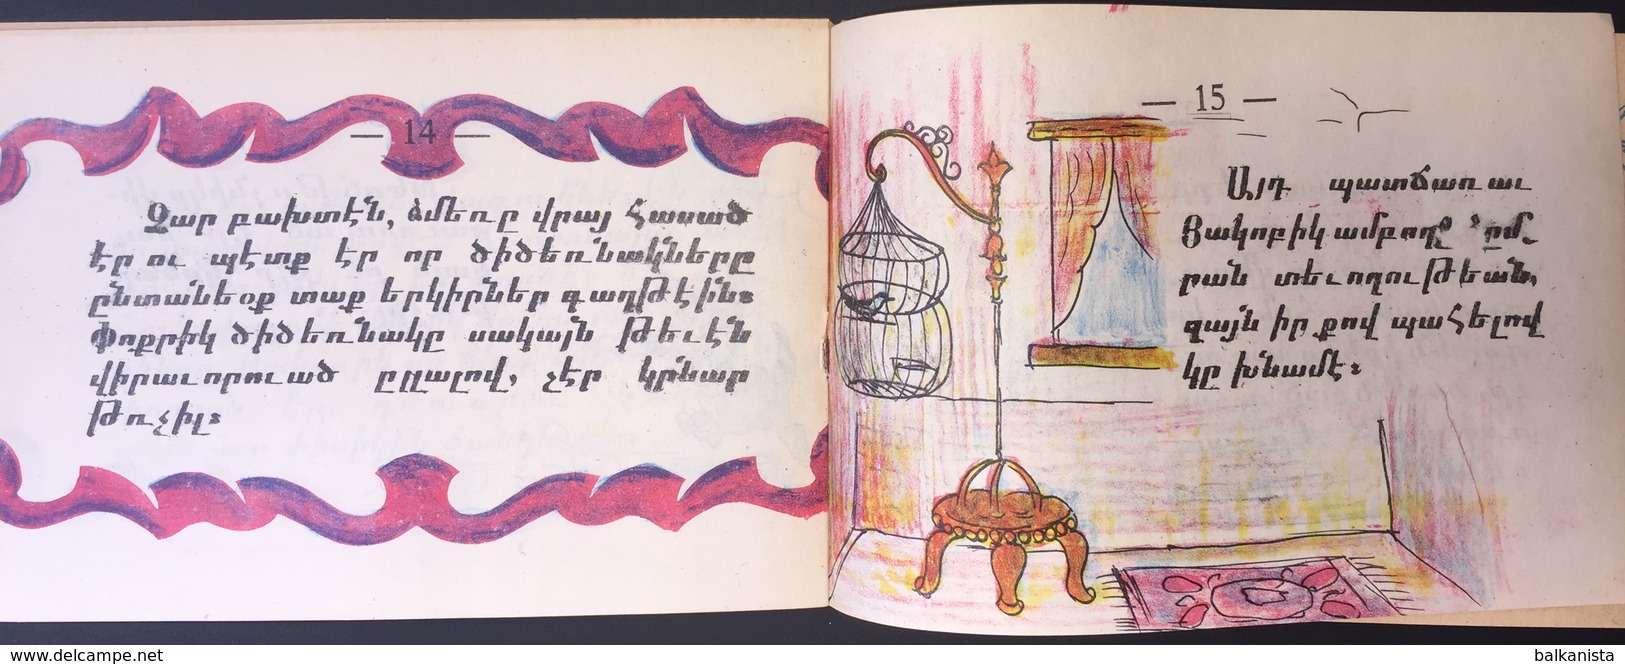 — 14 —
Չար բախտէն, ձմեռը վրայ հասած
էր ու պէտք էր որ ծիծեռնակները
ընտանեօք տաք երկիրներ գաղթէին։
Փոքրիկ ծիծեռնակը սակայն թեւէն
վիրաւորուած ըլլալով, չէր կրնար
թռչիլ։
— 15 —
Այդ պատճառաւ
Յակոբիկ ամբողջ ձմ-
րան տեւողութեան,
զայն իր քով պահելով
կը խնամէ։
www.delcampe.net
balkanista